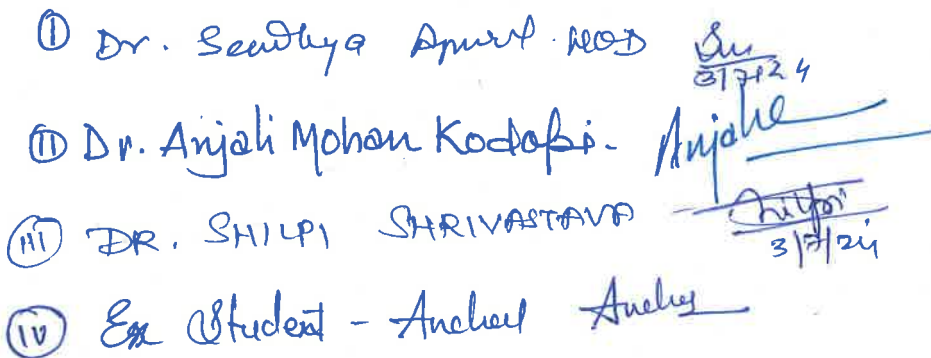 ① Dr. Sandhya Apurl. HOD
3/7/24
② Dr. Anjali Mohan Kodapi. Anjali
(iii) DR. SHILPI SHRIVASTAVA Shilpi
3/7/24
(iv) Ex Student - Anchal Anchal